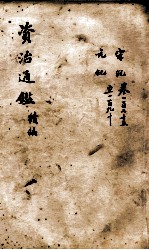 資治通鑑續編
宋紀 卷一百六十五
元紀 至一百九十